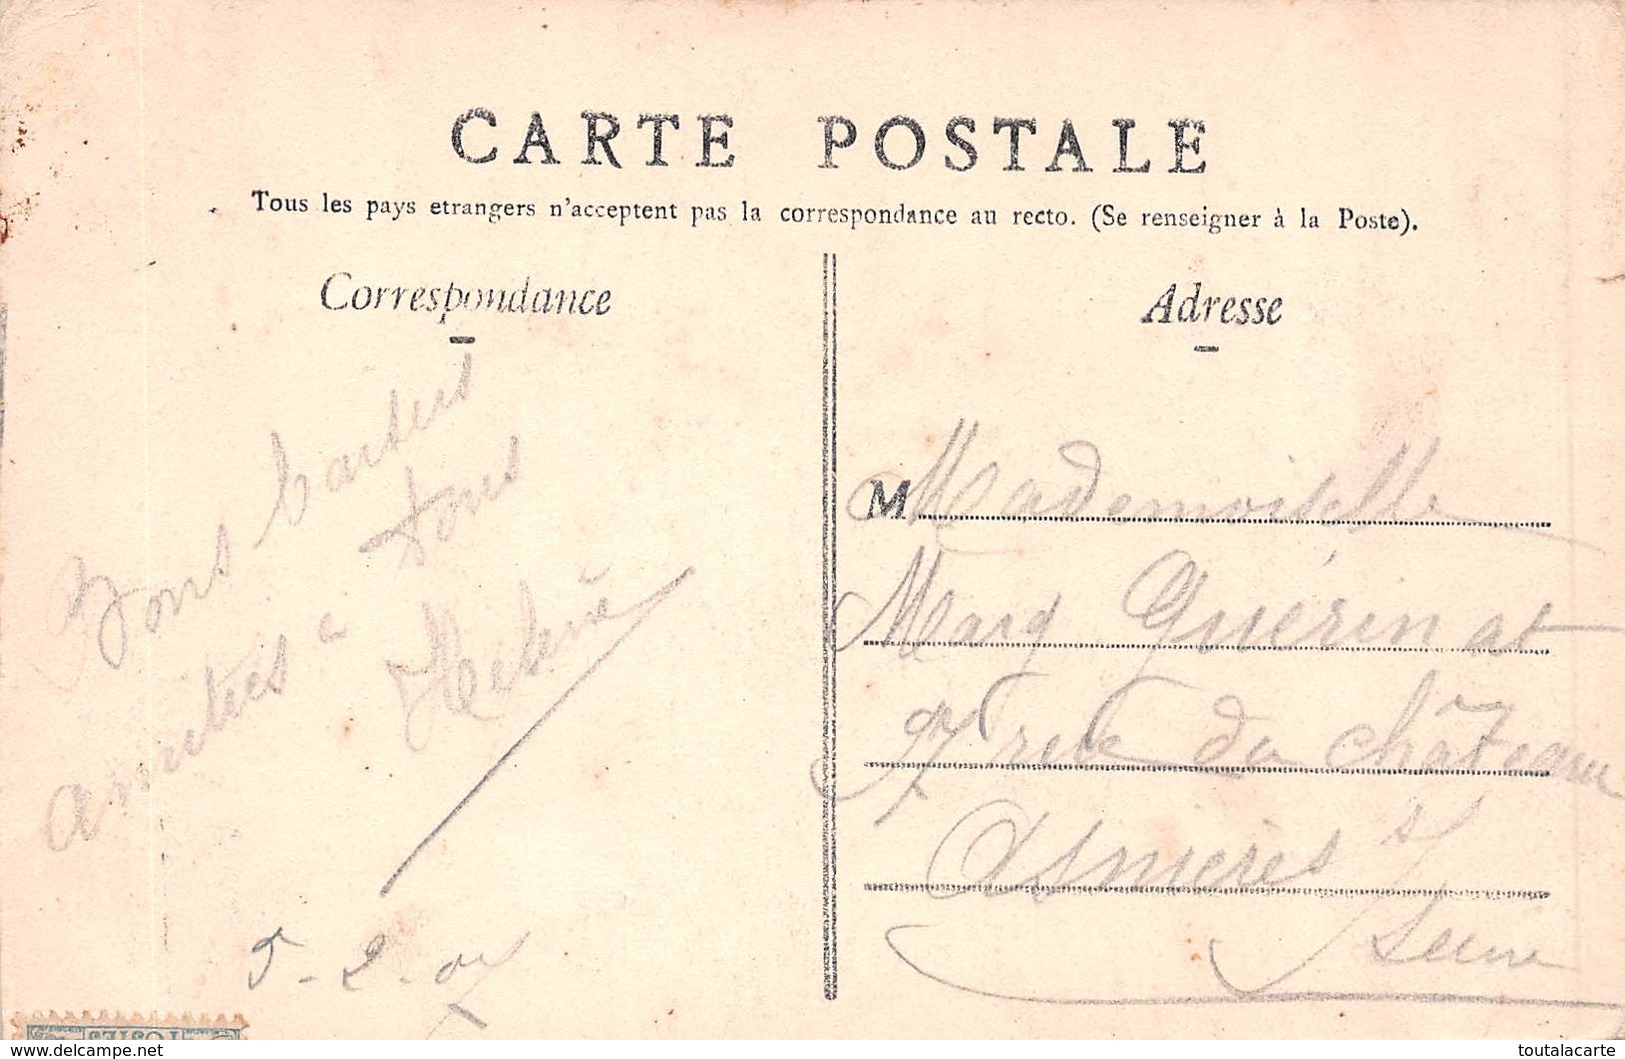 CARTE POSTALE
Tous les pays etrangers n'acceptent pas la correspondance au recto. (Se renseigner à la Poste).
Correspondance
Bons baisers
amitiés a tous
Adresse
M Mademoiselle
Guérinat
97 rue du château
Asnières s/
Seine
POSTES
www.delcampe.net
toutalacarte